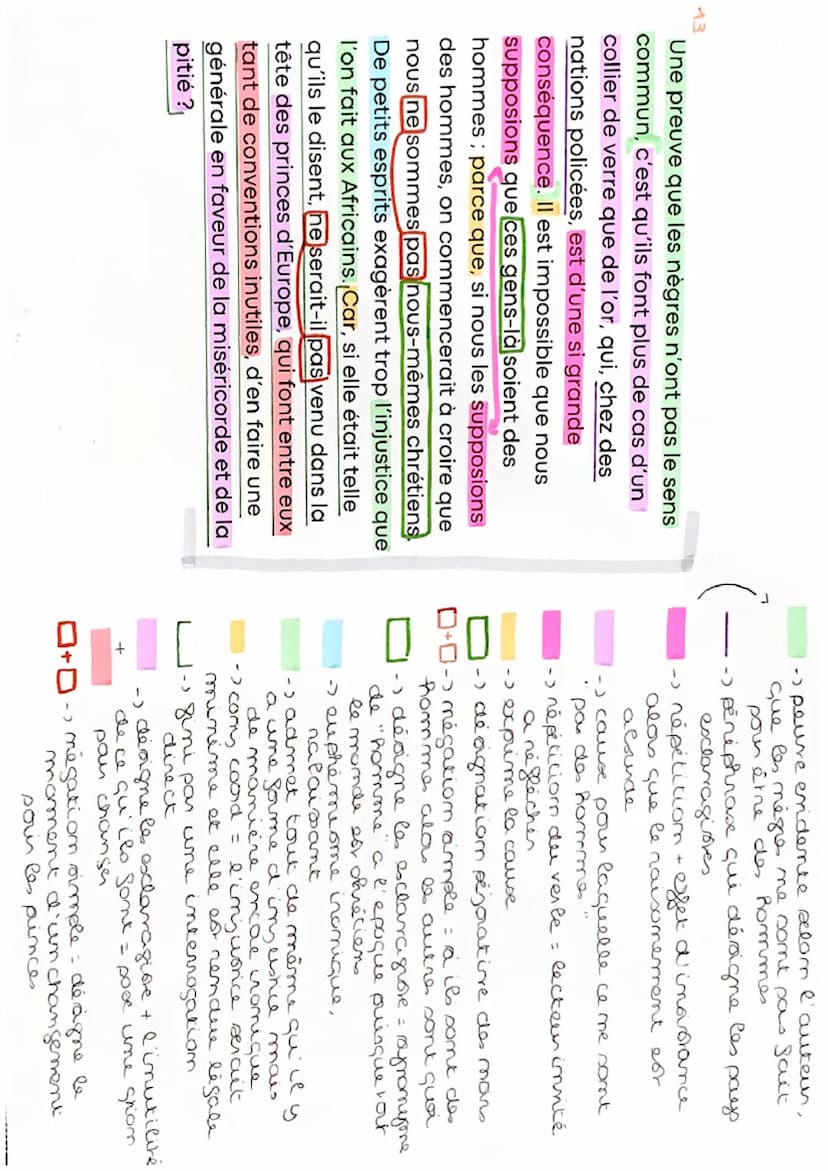 13
Une preuve que les nègres n'ont pas le sens
commun, c'est qu'ils font plus de cas d'un
collier de verre que de l'or, qui, chez des
nations policées, est d'une si grande
conséquence. Il est impossible que nous
supposions que ces gens-là soient des
hommes ; parce que, si nous les supposions
des hommes, on commencerait à croire que
nous ne sommes pas nous-mêmes chrétiens.
De petits esprits exagèrent trop l'injustice que
l'on fait aux Africains. Car, si elle était telle
qu'ils le disent, ne serait-il pas venu dans la
tête des princes d'Europe, qui font entre eux
tant de conventions inutiles, d'en faire une
générale en faveur de la miséricorde et de la
pitié ?
-> peuve evidente selon l'auteur,
que les nègres ne sont pas fait
pour être des hommes
-> périphrase qui désigne les pays
esclavagistes
-> répétition + effet d'insistance
alors que le raisonnement est
absurde
-> cause pour laquelle ce ne sont
"pas de hommes"
-> répétition du verbe = lecteur invité
a réfléchir
-> exprime la cause
-> désignation péjorative des noirs
-> négation simple = si ils sont des
hommes alors les autres sont quoi
-> désigne les esclavagiste = synonyme
de "homme" a l'epoque puisque tout
le monde est chrétiens
-> euphémisme ironique,
rabaissant
-> admet tout de même qu'il y
a une forme d'injustice mais
de manière encore ironique
-> conj coord = l'injustice serait
minime et elle est rendue légale
-> fini par une interrogation
direct
+
-> désigne les esclavagiste + l'inutilité
de ce qu'ils font =
pas changer
+ -> négation simple = désigne le
moment d'un changement
pour les princes